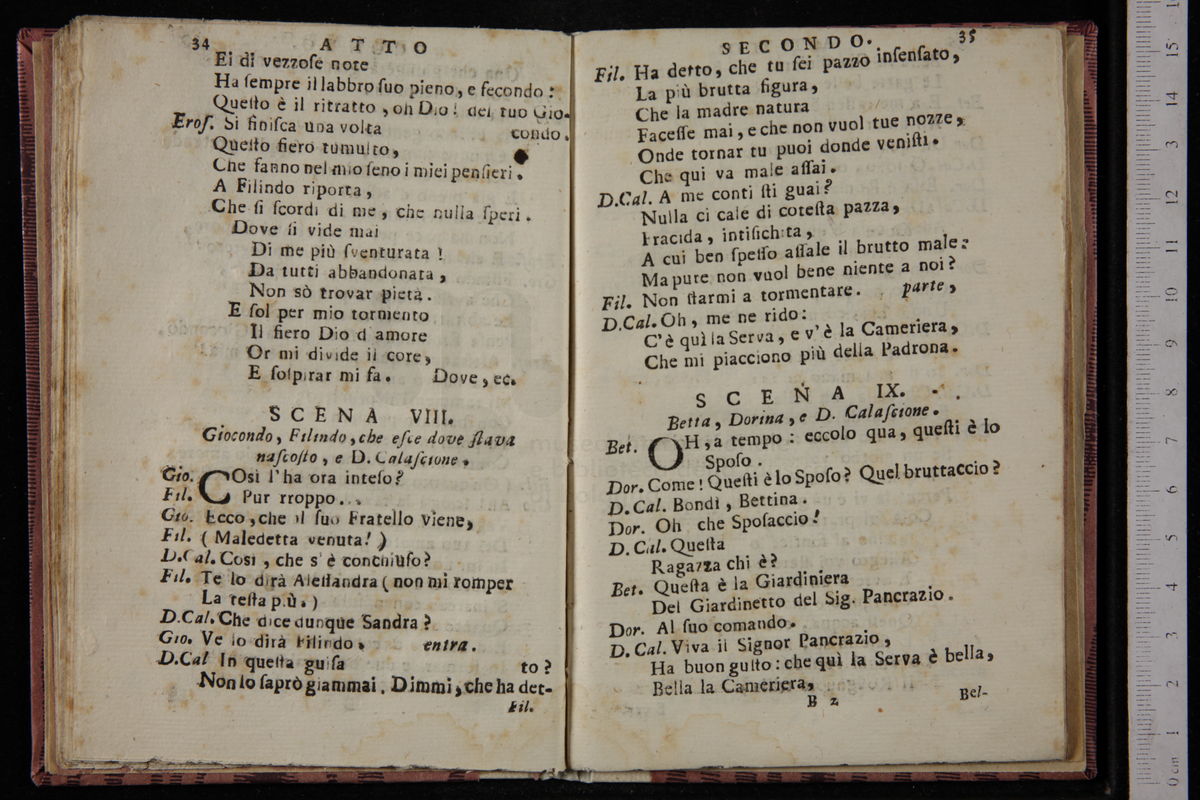 34 ATTO
Ei di vezzose note
Ha ſempre il labbro ſuo pieno, e fecondo:
Queſto è il ritratto, oh Dio! del tuo Gio-
condo.
Eroſ. Si finiſca una volta
Queſto fiero tumulto,
Che fanno nel mio ſeno i miei penſieri.
A Filindo riporta,
Che ſi ſcordi di me, che nulla ſperi.
Dove ſi vide mai
Di me più ſventurata!
Da tutti abbandonata,
Non sò trovar pietà.
E ſol per mio tormento
Il fiero Dio d'amore
Or mi divide il core,
E ſoſpirar mi fa. Dove, ec.
SCENA VIII.
Giocondo, Filindo, che eſce dove ſtava
naſcoſto, e D. Calaſcione.
Gio. COsì l'ha ora inteſo?
Fil. Pur troppo.
Gio. Ecco, che il ſuo Fratello viene,
Fil. (Maledetta venuta!)
D.Cal. Così, che s'è conchiuſo?
Fil. Te lo dirà Aleſſandra (non mi romper
La teſta più.)
D.Cal. Che dice dunque Sandra?
Gio. Ve lo dirà Filindo. entra.
D.Cal In queſta guiſa
Non lo ſaprò giammai. Dimmi, che ha det-
to?
Fil.
SECONDO. 35
Fil. Ha detto, che tu ſei pazzo inſenſato,
La più brutta figura,
Che la madre natura
Faceſſe mai, e che non vuol tue nozze,
Onde tornar tu puoi donde veniſti.
Che qui va male aſſai.
D.Cal. A me conti ſti guai?
Nulla ci cale di coteſta pazza,
Fracida, intiſichita,
A cui ben ſpeſſo aſſale il brutto male:
Ma pure non vuol bene niente a noi?
Fil. Non ſtarmi a tormentare. parte,
D.Cal. Oh, me ne rido:
C'è quì la Serva, e v'è la Cameriera,
Che mi piacciono più della Padrona.
SCENA IX.
Betta, Dorina, e D. Calaſcione.
Bet. OH, a tempo: eccolo qua, queſti è lo
Spoſo.
Dor. Come! Queſti è lo Spoſo? Quel bruttaccio?
D.Cal. Bondì, Bettina.
Dor. Oh che Spoſaccio!
D.Cal. Queſta
Ragazza chi è?
Bet. Queſta è la Giardiniera
Del Giardinetto del Sig. Pancrazio.
Dor. Al ſuo comando.
D.Cal. Viva il Signor Pancrazio,
Ha buon guſto: che quì la Serva è bella,
Bella la Cameriera,
B 2 Bel-